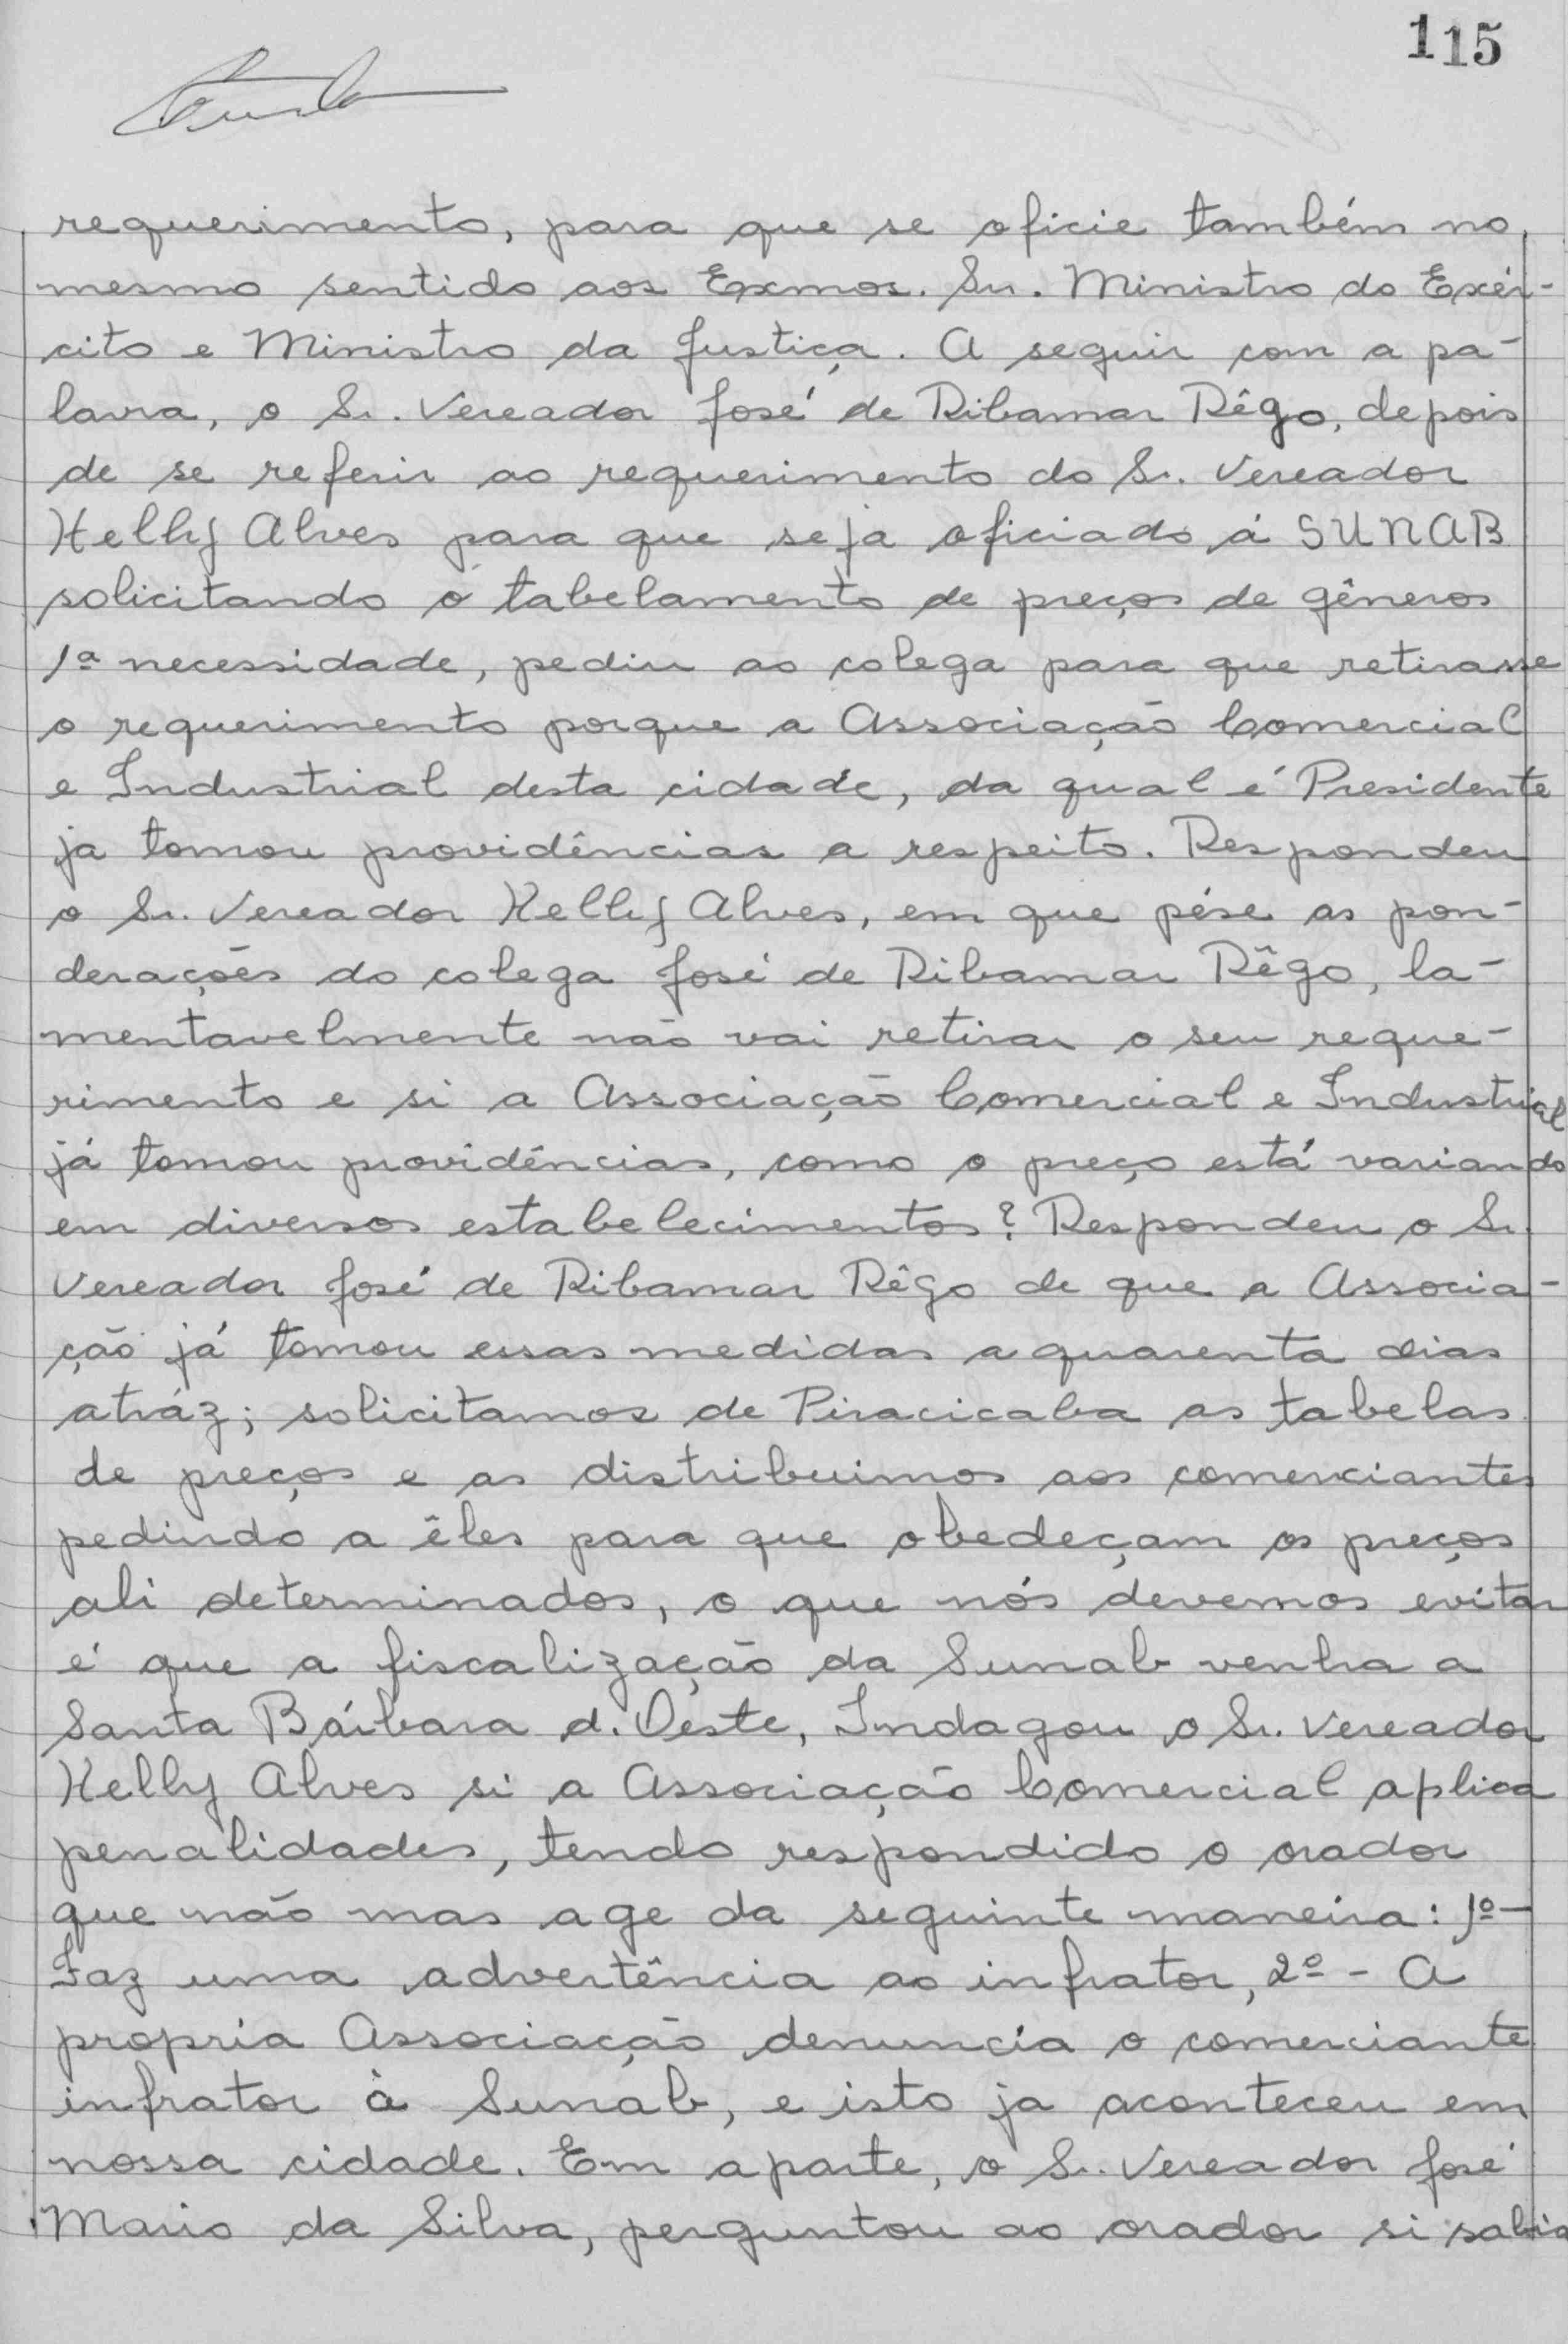 115
requerimento, para que se oficie também no
mesmo sentido aos Exmos. Sr. Ministro do Exér-
cito e Ministro da Justiça. A seguir com a pa-
lavra, o Sr. Vereador José de Ribamar Rêgo, depois
de se referir ao requerimento do Sr. Vereador
Kelly Alves para que seja oficiado á SUNAB
solicitando o tabelamento de preços de gêneros
1ª necessidade, pediu ao colega para que retirasse
o requerimento porque a Associação Comercial
e Industrial desta cidade, da qual é Presidente
ja tomou providências a respeito. Respondeu
o Sr. Vereador Kelly Alves, em que pése as pon-
derações do colega José de Ribamar Rêgo, la-
mentavelmente não vai retirar o seu reque-
rimento e si a Associação Comercial e Industrial
já tomou providências, como o preço está variando
em diversos estabelecimentos? Respondeu o Sr.
Vereador José de Ribamar Rêgo de que a Associa-
ção já tomou essas medidas a quarenta dias
atráz; solicitamos de Piracicaba as tabelas
de preços e as distribuimos aos comerciantes
pedindo a êles para que obedeçam os preços
ali determinados, o que nós devemos evitar
é que a fiscalização da Sunab venha a
Santa Bárbara d'Oéste, Indagou o Sr. Vereador
Kelly Alves si a Associação Comercial aplica
penalidades, tendo respondido o orador
que não mas age da seguinte maneira: 1º-
Faz uma advertência ao infrator, 2º - A
propria Associação denuncía o comerciante
infrator à Sunab, e isto ja aconteceu em
nossa cidade. Em aparte, o Sr. Vereador José
Mario da Silva, perguntou ao orador si sabia